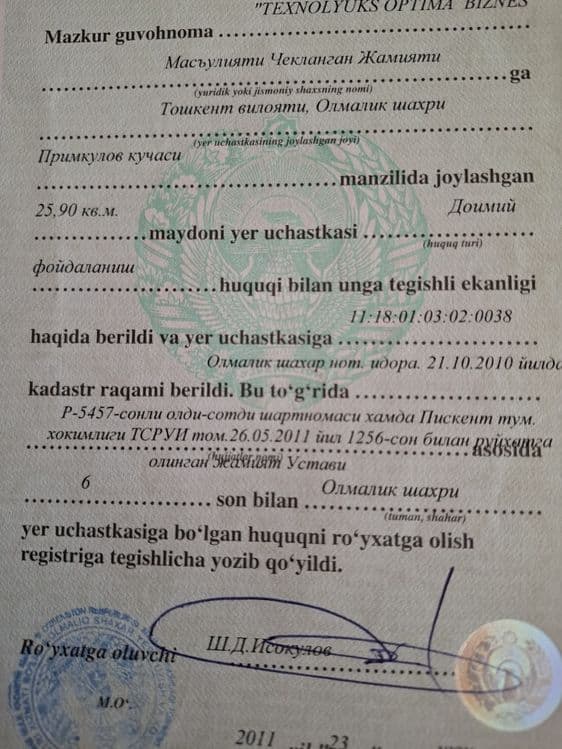 "TEXNOLYUKS OPTIMA BIZNES
Mazkur guvohnoma
Масъулияти Чекланган Жамияти
ga
(yuridik yoki jismoniy shaxsning nomi)
Тошкент вилояти, Олмалик шахри
(yer uchastkasining joylashgan joyi)
Примкулов кучаси
manzilida joylashgan
25,90 кв.м. Доимий
maydoni yer uchastkasi
(huquq turi)
фойдаланиш
huquqi bilan unga tegishli ekanligi
11:18:01:03:02:0038
haqida berildi va yer uchastkasiga
Олмалик шахар нот. идора. 21.10.2010 йилда
kadastr raqami berildi. Bu to‘g‘rida
Р-5457-сонли олди-сотди шартномаси хамда Пискент тум.
хокимлиги ТСРУИ том.26.05.2011 йил 1256-сон билан руйхатга
(hujjatlar nomi) asosida
олинган Жамият Устави
6 Олмалик шахри
son bilan
(tuman, shahar)
yer uchastkasiga bo‘lgan huquqni ro‘yxatga olish
registriga tegishlicha yozib qo‘yildi.
Ro‘yxatga oluvchi Ш.Д.Исокулов
M.O‘.
2011 23